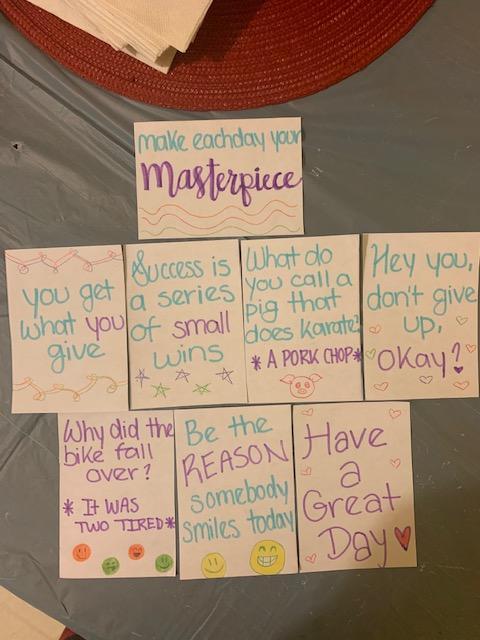 make eachday your
Masterpiece
you get
what you
give
Success is
a series
of small
wins
What do
you call a
pig that
does karate?
* A PORK CHOP*
Hey you,
don't give
up,
okay?
Why did the
bike fall
over?
* IT WAS
TWO TIRED*
Be the
REASON
somebody
smiles today
Have
a
Great
Day